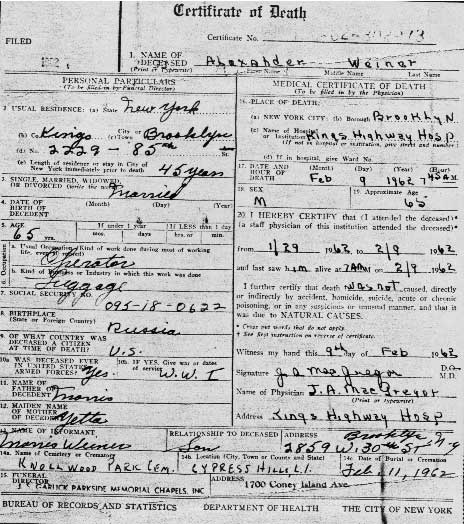 Certificate of Death
FILED
Certificate No.
1. NAME OF DECEASED (Print or Typewrite) Alexander Weiner
First Name Middle Name Last Name
PERSONAL PARTICULARS
(To be filled in by Funeral Director)
2. USUAL RESIDENCE: (a) State New York
(b) Co. Kings (c) City or Town Brooklyn
(d) No. 2229 - 85th St.
(e) Length of residence or stay in City of New York immediately prior to death 45 years
3. SINGLE, MARRIED, WIDOWED, OR DIVORCED (write the word) Married
4. DATE OF BIRTH OF DECEDENT (Month) (Day) (Year)
5. AGE 65 yrs. If under 1 year mos. days If LESS than 1 day hrs. or min.
6. Occupation
a. Usual Occupation (Kind of work done during most of working life, even if retired) Operator
b. Kind of Business or Industry in which this work was done Luggage
7. SOCIAL SECURITY NO. 095-18-0622
8. BIRTHPLACE (State or Foreign Country) Russia
9. OF WHAT COUNTRY WAS DECEASED A CITIZEN AT TIME OF DEATH? U.S.
10a. WAS DECEASED EVER IN UNITED STATES ARMED FORCES? Yes. 10b. IF YES, Give war or dates of service W.W. I
11. NAME OF FATHER OF DECEDENT Morris
12. MAIDEN NAME OF MOTHER OF DECEDENT Yetta
MEDICAL CERTIFICATE OF DEATH
(To be filled in by the Physician)
16. PLACE OF DEATH:
(a) NEW YORK CITY: (b) Borough Brooklyn
(c) Name of Hospital or Institution Kings Highway Hosp.
(If not in hospital or institution, give street and number)
(d) If in hospital, give Ward No.
17. DATE AND HOUR OF DEATH (Month) (Day) (Year) (Hour) Feb 9 1962
18. SEX M 19. Approximate Age 65
20. I HEREBY CERTIFY that (I attended the deceased)*
(a staff physician of this institution attended the deceased)*
from 1/29 1962 to 2/9 1962
and last saw him alive at 7AM on 2/9 1962
I further certify that death was not caused, directly
or indirectly by accident, homicide, suicide, acute or chronic
poisoning, or in any suspicious or unusual manner, and that it
was due to NATURAL CAUSES.
* Cross out words that do not apply.
* See first instruction on reverse of certificate.
Witness my hand this 9th day of Feb 1962
Signature J A MacGregor D.O. M.D.
Name of Physician J.A. MacGregor
(Print or Typewrite)
Address Kings Highway Hosp
13. NAME OF INFORMANT Morris Weiner RELATIONSHIP TO DECEASED Son ADDRESS Brooklyn N.Y. 2859 W. 30th St
14a. Name of Cemetery or Crematory KNOLLWOOD PARK CEM. 14b. Location (City, Town or County and State) CYPRESS HILL L.I. 14c. Date of Burial or Cremation Feb. 11, 1962
15. FUNERAL DIRECTOR J. S. GARLICK PARKSIDE MEMORIAL CHAPELS, INC ADDRESS 1700 Coney Island Ave.
BUREAU OF RECORDS AND STATISTICS DEPARTMENT OF HEALTH THE CITY OF NEW YORK